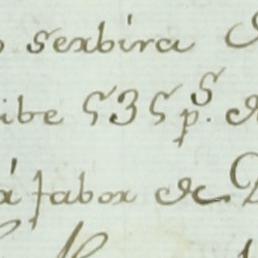 o serbira
ibe 535 p.s de
á fabor de D